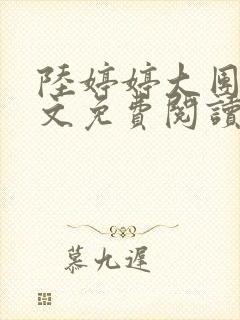 陸婷婷大團
文免費閱讀
慕九遲